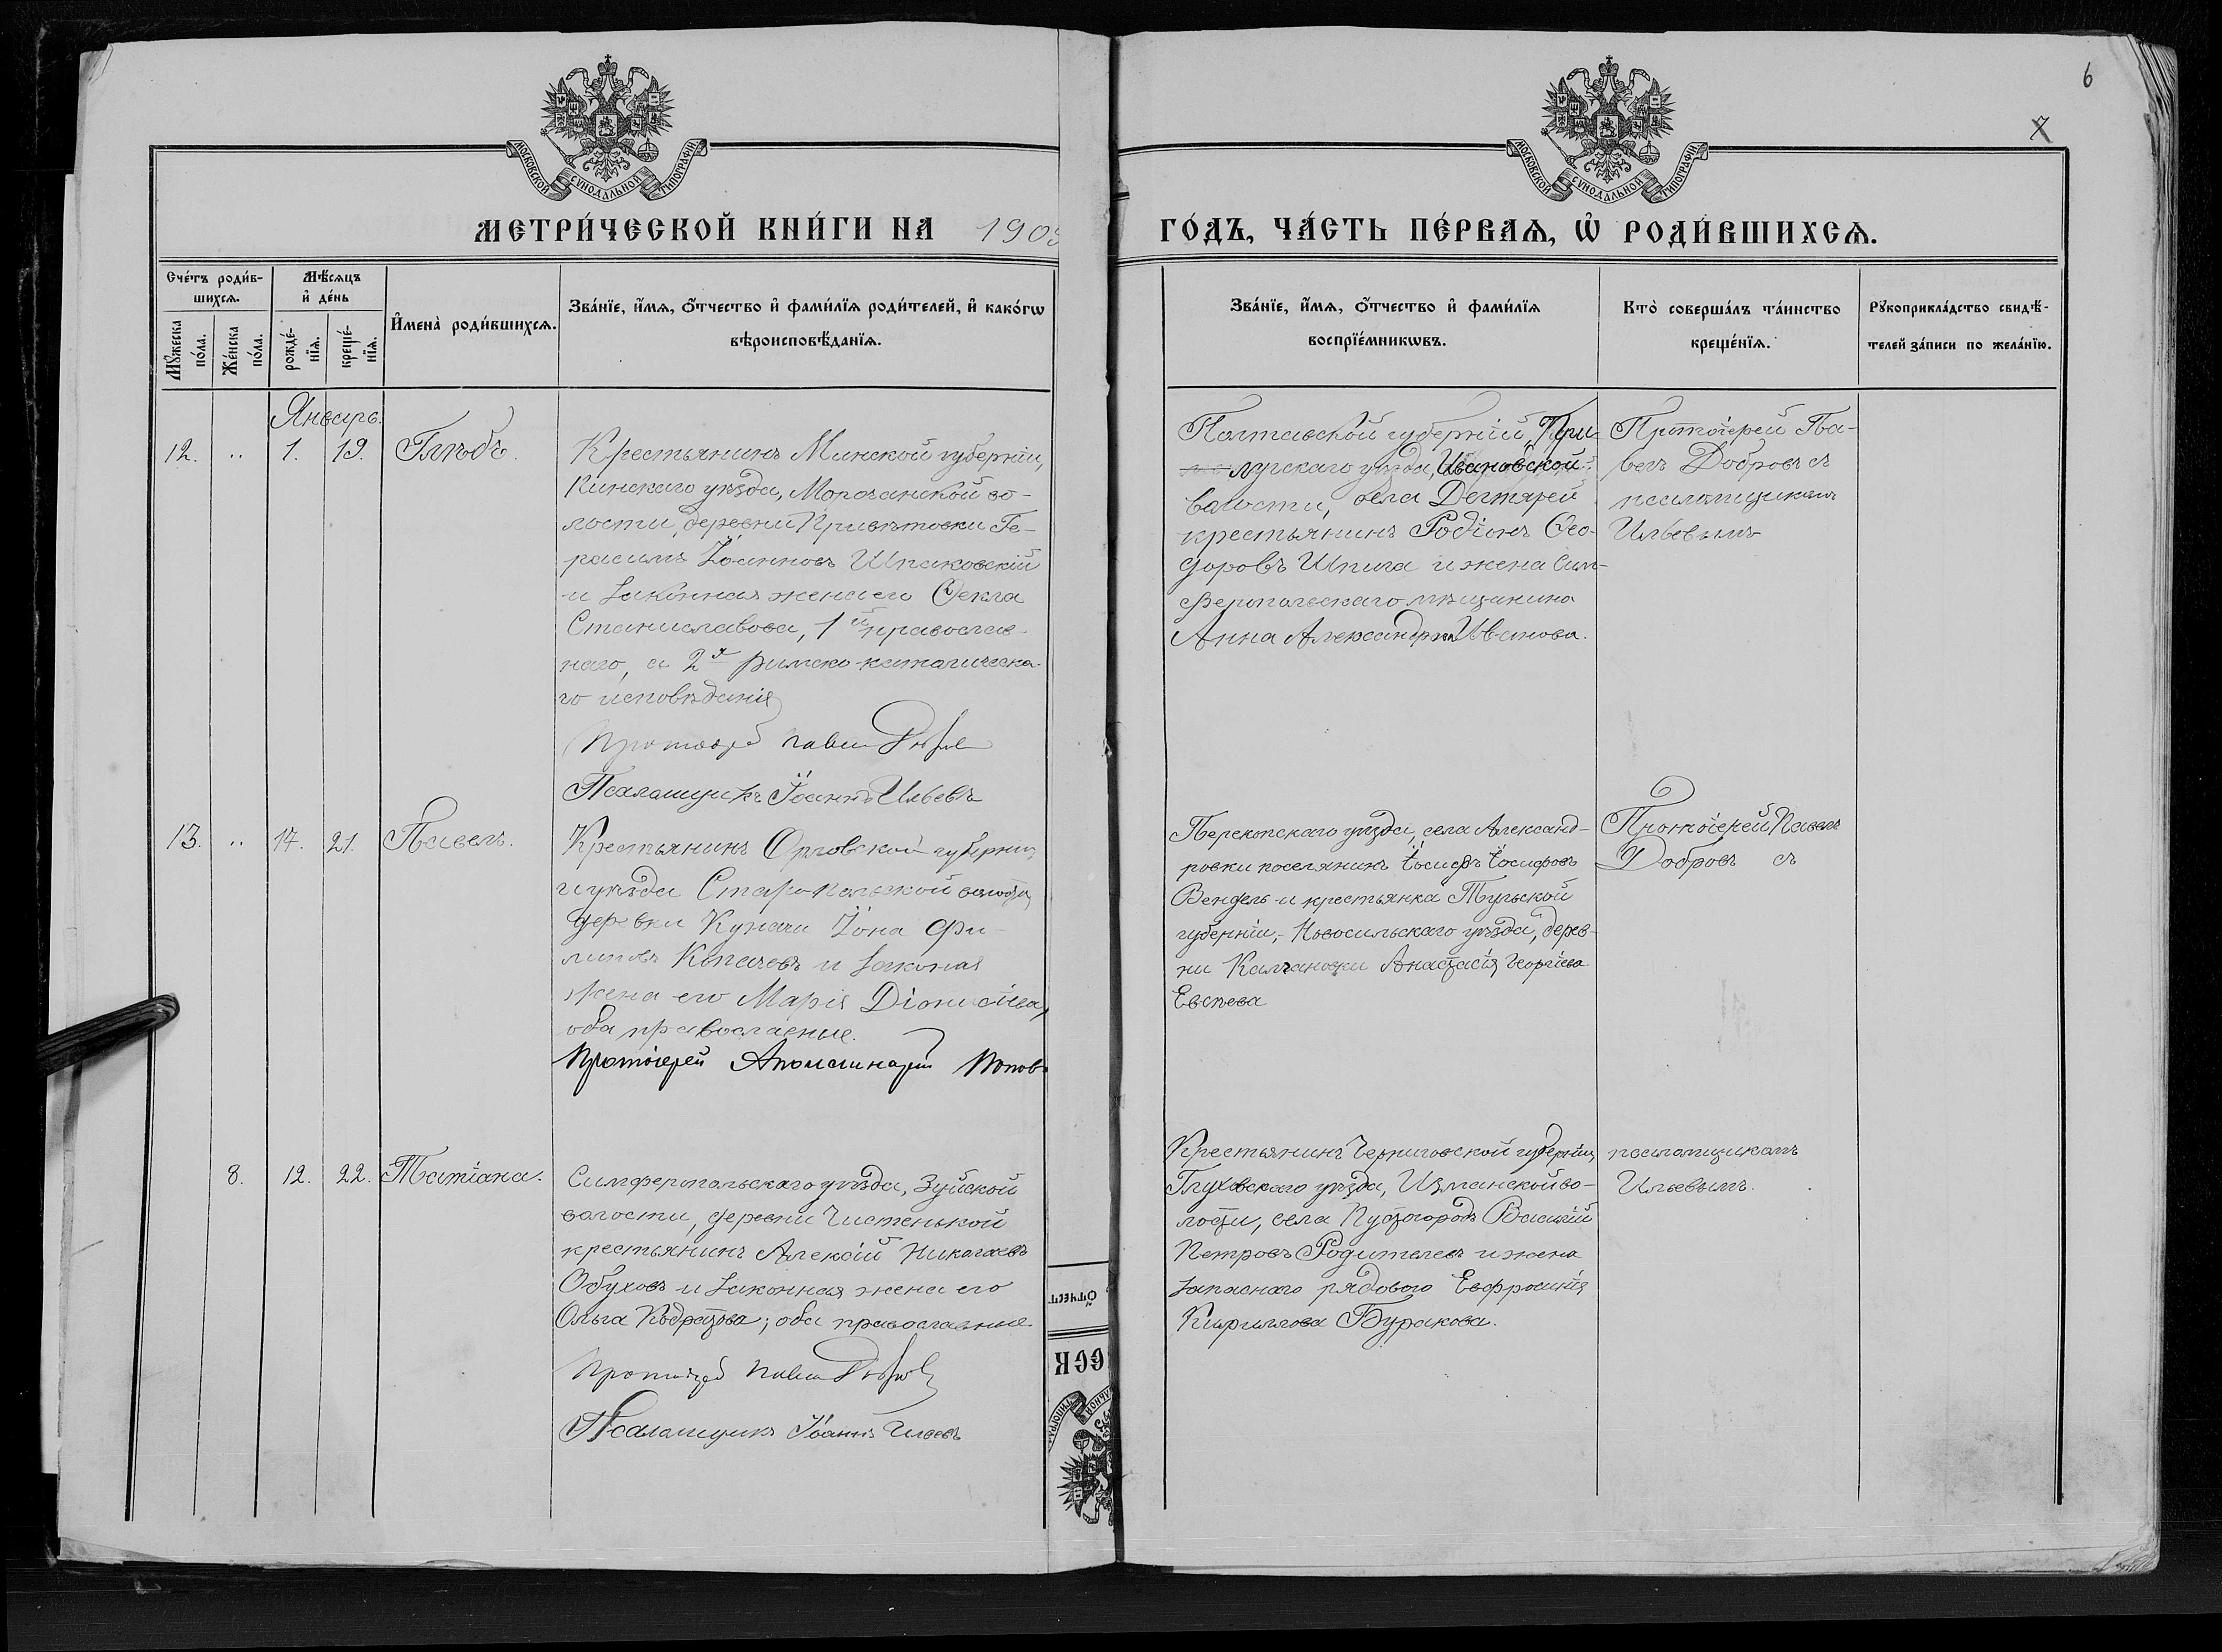 6
7
МОСКОВСКОЙ СУНОДАЛЬНОЙ ТИПОГРАФІИ
МОСКОВСКОЙ СУНОДАЛЬНОЙ ТИПОГРАФІИ
МЕТРИ́ЧЕСКОЙ КНИ́ГИ НА 1903
ГО́ДЪ, ЧА́СТЬ ПЕ́РВАѦ, Ѡ҆ РОДИ́ВШИХСѦ.
Сче́тъ роди́в-
шихсѧ.
Мꙋ́жеска
по́ла.
Же́нска
по́ла.
Мѣ́сѧцъ
и҆ де́нь
рожде́-
нїѧ.
креще́-
нїѧ.
И҆мена̀ роди́вшихсѧ.
Зва́нїе, и҆́мѧ, ѻ҆́тчество и҆ фами́лїѧ роди́телей, и҆ како́гѡ
вѣроисповѣ́данїѧ.
Зва́нїе, и҆́мѧ, ѻ҆́тчество и҆ фами́лїѧ
воспрїе́мникѡвъ.
Кто̀ соверша́лъ та́инство
креще́нїѧ.
Рꙋкоприкла́дство свидѣ́-
телей за́писи по жела́нїю.
Январь.
12. „ 1. 19. Глѣбъ.
Крестьянинъ Минской губерніи,
Пинскаго уѣзда,Морочанской во-
лости, деревни Привѣтовки Ге-
расимъ Іоанновъ Шпаковскій
и законная жена его Ѳекла
Станиславова, 1й православ-
наго, а 2я римско-католическа-
го исповѣданія
Протоіерей Павелъ Добровъ
Псаломщикъ Іоаннъ Ильевъ
Полтавской губерніи, При-
лукскаго уѣзда, Ивановской
волости, села Дегтярей
крестьянинъ Родіонъ Ѳео-
доровъ Шпига и жена Сим-
феропольскаго мѣщанина
Анна Александрова Иванова.
Протоіерей Па-
велъ Добровъ съ
псаломщикомъ
Ильевымъ
13. „ 17. 21. Павелъ.
Крестьянинъ Орловской губерніи
и уѣзда Старо-Кольской волости,
деревни Куначи Іона Фи-
липовъ Копачевъ и законная
жена его Марія Діонисіева,
оба православные.
Протоіерей Аполлинарій Поповъ
Перекопскаго уѣзда, села Александ-
ровки поселянинъ Іосифъ Іосифовъ
Вендель и крестьянка Тульской
губерніи, Новосильскаго уѣзда, дерев-
ни Калгановки Анастасія Георгіева
Евсѣева
Протоіерей Павелъ
Добровъ съ
8. 12. 22. Татіана.
Симферопольскаго уѣзда, Зуйской
волости, деревни Чистенькой
крестьянинъ Алексій Николаевъ
Обуховъ и законная жена его
Ольга Кодратова; оба православные.
Протоіерей Павелъ Добровъ
Псаломщикъ Іоаннъ Ильевъ
Крестьянинъ Черниговской губерніи,
Глуховскаго уѣзда, Изманской во-
лости, села Пустогородъ Василій
Петровъ Родителевъ и жена
запаснаго рядового Евфросинія
Кириллова Буракова.
псаломщикомъ
Ильевымъ.